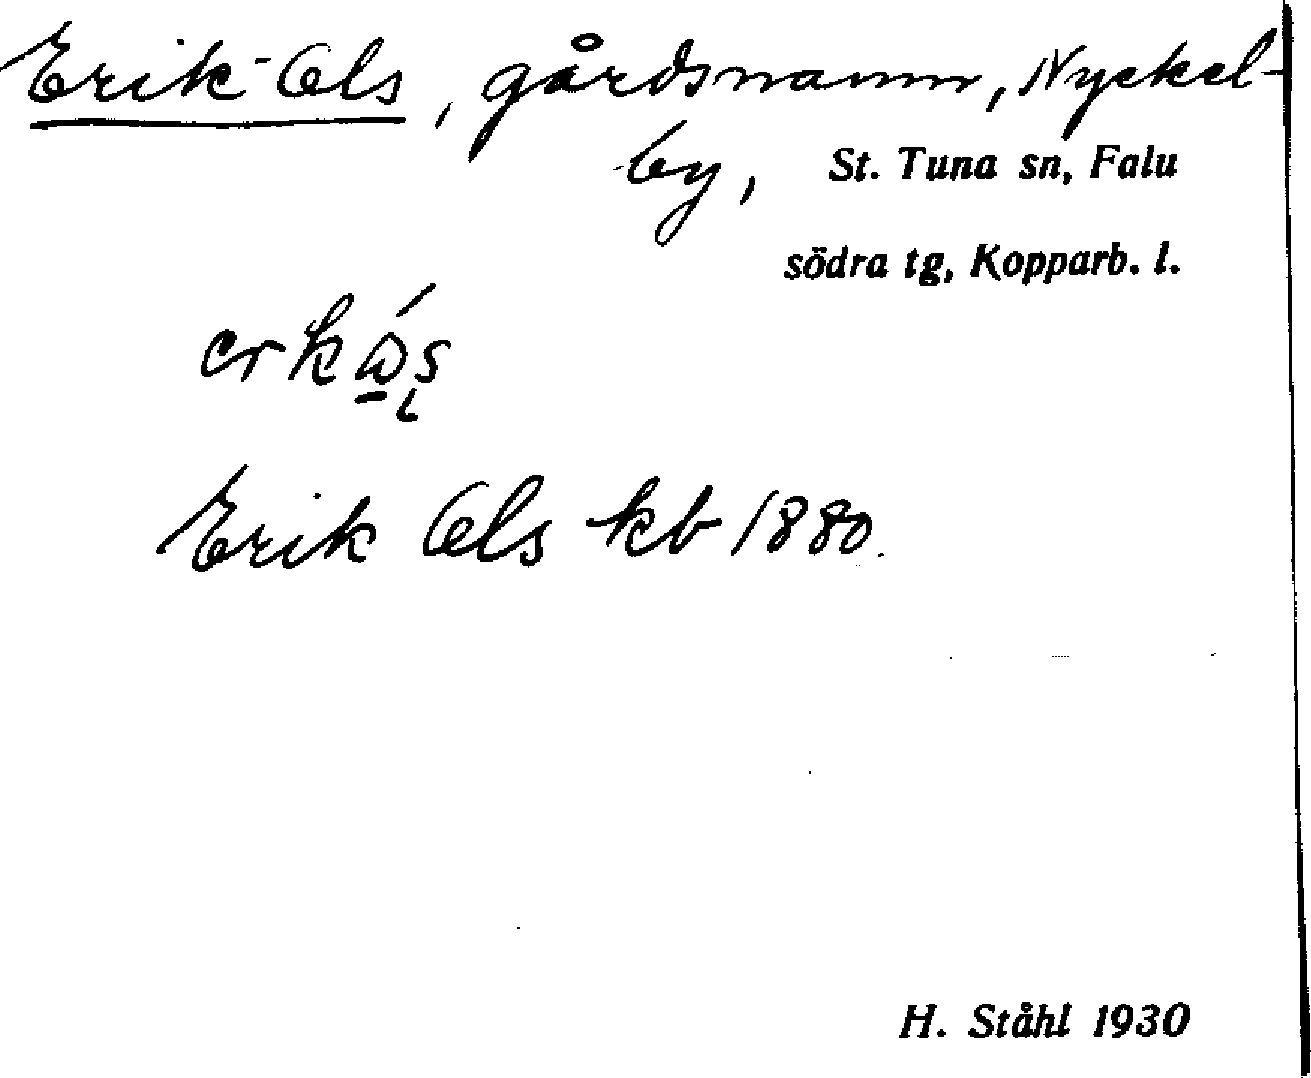 Erik-Ols, gårdsnamn, Nyckel-
by, St. Tuna sn, Falu
södra tg, Kopparb. l.
Erik Ols kb 1880.
H. Ståhl 1930